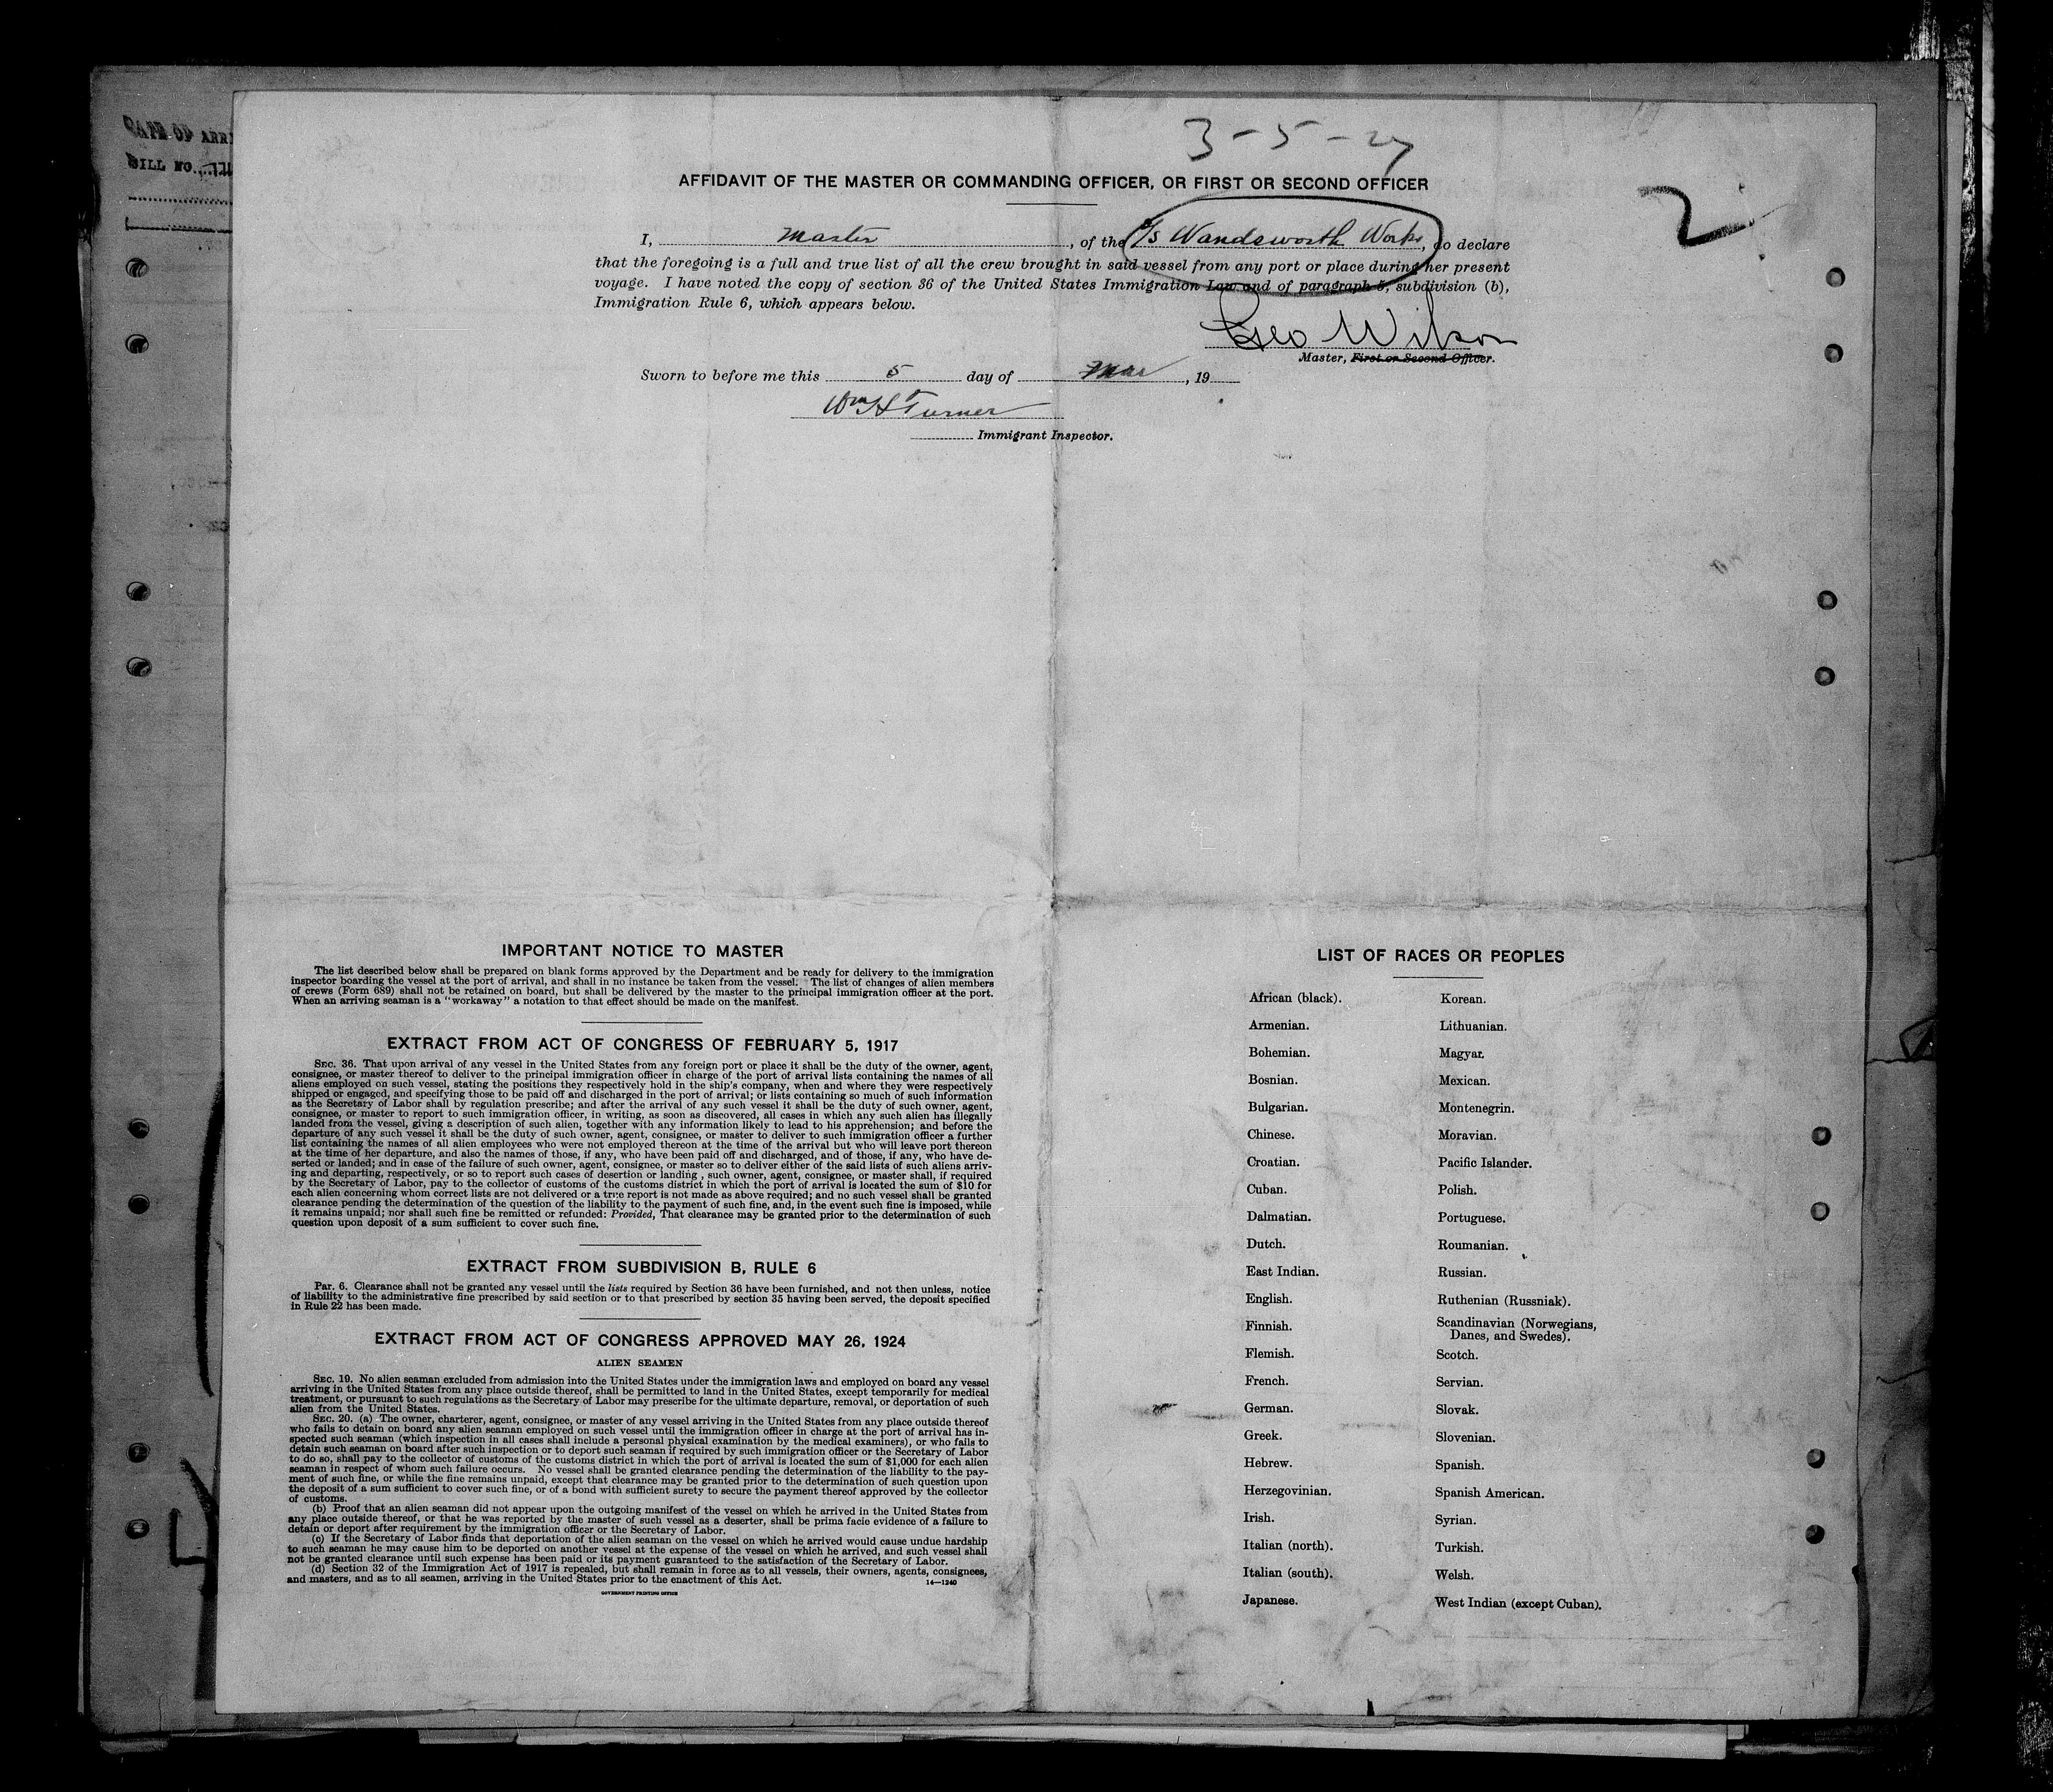 3-5-27
2
AFFIDAVIT OF THE MASTER OR COMMANDING OFFICER, OR FIRST OR SECOND OFFICER
I, Master, of the S/s Wandsworth Works, do declare
that the foregoing is a full and true list of all the crew brought in said vessel from any port or place during her present
voyage. I have noted the copy of section 36 of the United States Immigration Law and of paragraph 5, subdivision (b),
Immigration Rule 6, which appears below.
Geo Wilson
Master, First or Second Officer.
Sworn to before me this 5 day of Mar, 19
Wm H Turner
Immigrant Inspector.
ARRI
BILL NO.
IMPORTANT NOTICE TO MASTER
The list described below shall be prepared on blank forms approved by the Department and be ready for delivery to the immigration
inspector boarding the vessel at the port of arrival, and shall in no instance be taken from the vessel. The list of changes of alien members
of crews (Form 689) shall not be retained on board, but shall be delivered by the master to the principal immigration officer at the port.
When an arriving seaman is a "workaway" a notation to that effect should be made on the manifest.
EXTRACT FROM ACT OF CONGRESS OF FEBRUARY 5, 1917
SEC. 36. That upon arrival of any vessel in the United States from any foreign port or place it shall be the duty of the owner, agent,
consignee, or master thereof to deliver to the principal immigration officer in charge of the port of arrival lists containing the names of all
aliens employed on such vessel, stating the positions they respectively hold in the ship's company, when and where they were respectively
shipped or engaged, and specifying those to be paid off and discharged in the port of arrival; or lists containing so much of such information
as the Secretary of Labor shall by regulation prescribe; and after the arrival of any such vessel it shall be the duty of such owner, agent,
consignee, or master to report to such immigration officer, in writing, as soon as discovered, all cases in which any such alien has illegally
landed from the vessel, giving a description of such alien, together with any information likely to lead to his apprehension; and before the
departure of any such vessel it shall be the duty of such owner, agent, consignee, or master to deliver to such immigration officer a further
list containing the names of all alien employees who were not employed thereon at the time of the arrival but who will leave port thereon
at the time of her departure, and also the names of those, if any, who have been paid off and discharged, and of those, if any, who have de-
serted or landed; and in case of the failure of such owner, agent, consignee, or master so to deliver either of the said lists of such aliens arriv-
ing and departing, respectively, or so to report such cases of desertion or landing , such owner, agent, consignee, or master shall, if required
by the Secretary of Labor, pay to the collector of customs of the customs district in which the port of arrival is located the sum of $10 for
each alien concerning whom correct lists are not delivered or a true report is not made as above required; and no such vessel shall be granted
clearance pending the determination of the question of the liability to the payment of such fine, and, in the event such fine is imposed, while
it remains unpaid; nor shall such fine be remitted or refunded: Provided, That clearance may be granted prior to the determination of such
question upon deposit of a sum sufficient to cover such fine.
EXTRACT FROM SUBDIVISION B, RULE 6
Par. 6. Clearance shall not be granted any vessel until the lists required by Section 36 have been furnished, and not then unless, notice
of liability to the administrative fine prescribed by said section or to that prescribed by section 35 having been served, the deposit specified
in Rule 22 has been made.
EXTRACT FROM ACT OF CONGRESS APPROVED MAY 26, 1924
ALIEN SEAMEN
SEC. 19. No alien seaman excluded from admission into the United States under the immigration laws and employed on board any vessel
arriving in the United States from any place outside thereof, shall be permitted to land in the United States, except temporarily for medical
treatment, or pursuant to such regulations as the Secretary of Labor may prescribe for the ultimate departure, removal, or deportation of such
alien from the United States.
SEC. 20. (a) The owner, charterer, agent, consignee, or master of any vessel arriving in the United States from any place outside thereof
who fails to detain on board any alien seaman employed on such vessel until the immigration officer in charge at the port of arrival has in-
spected such seaman (which inspection in all cases shall include a personal physical examination by the medical examiners), or who fails to
detain such seaman on board after such inspection or to deport such seaman if required by such immigration officer or the Secretary of Labor
to do so, shall pay to the collector of customs of the customs district in which the port of arrival is located the sum of $1,000 for each alien
seaman in respect of whom such failure occurs. No vessel shall be granted clearance pending the determination of the liability to the pay-
ment of such fine, or while the fine remains unpaid, except that clearance may be granted prior to the determination of such question upon
the deposit of a sum sufficient to cover such fine, or of a bond with sufficient surety to secure the payment thereof approved by the collector
of customs.
(b) Proof that an alien seaman did not appear upon the outgoing manifest of the vessel on which he arrived in the United States from
any place outside thereof, or that he was reported by the master of such vessel as a deserter, shall be prima facie evidence of a failure to
detain or deport after requirement by the immigration officer or the Secretary of Labor.
(c) If the Secretary of Labor finds that deportation of the alien seaman on the vessel on which he arrived would cause undue hardship
to such seaman he may cause him to be deported on another vessel at the expense of the vessel on which he arrived, and such vessel shall
not be granted clearance until such expense has been paid or its payment guaranteed to the satisfaction of the Secretary of Labor.
(d) Section 32 of the Immigration Act of 1917 is repealed, but shall remain in force as to all vessels, their owners, agents, consignees,
and masters, and as to all seamen, arriving in the United States prior to the enactment of this Act.
14—1240
GOVERNMENT PRINTING OFFICE
LIST OF RACES OR PEOPLES
African (black). Korean.
Armenian. Lithuanian.
Bohemian. Magyar.
Bosnian. Mexican.
Bulgarian. Montenegrin.
Chinese. Moravian.
Croatian. Pacific Islander.
Cuban. Polish.
Dalmatian. Portuguese.
Dutch. Roumanian.
East Indian. Russian.
English. Ruthenian (Russniak).
Finnish. Scandinavian (Norwegians,
Danes, and Swedes).
Flemish. Scotch.
French. Servian.
German. Slovak.
Greek. Slovenian.
Hebrew. Spanish.
Herzegovinian. Spanish American.
Irish. Syrian.
Italian (north). Turkish.
Italian (south). Welsh.
Japanese. West Indian (except Cuban).